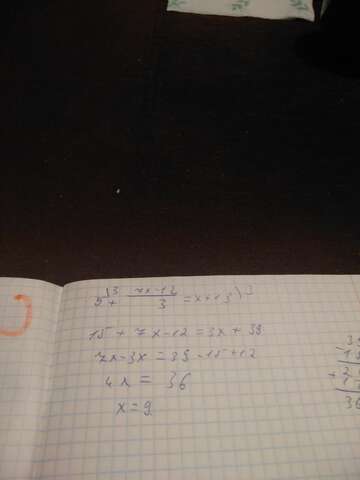 5\3 + 7x-12/3 = x+13\3
15 + 7x-12 = 3x + 39
7x-3x = 39-15+12
4x = 36
x=9
36